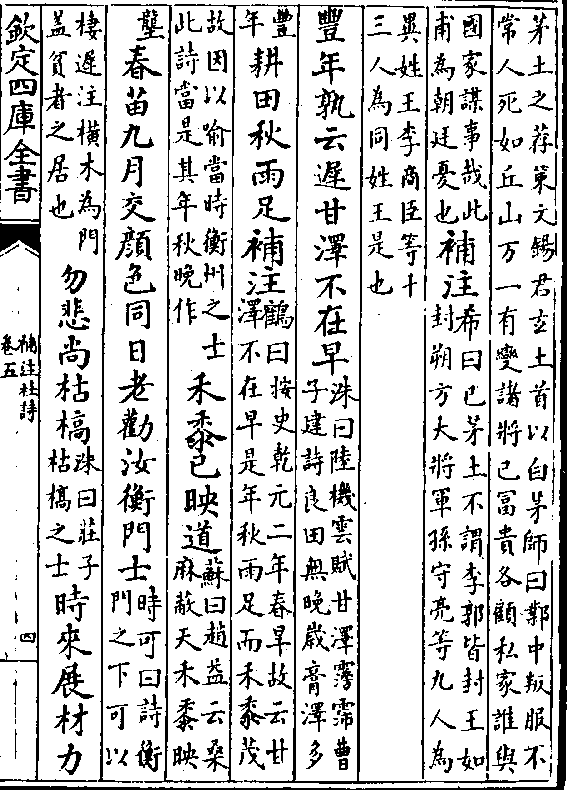 茅土之荐策文錫君玄土首以白茅師曰鄴中叛服不
常人死如丘山万一有變諸將已冨貴各顧私家誰與
國家謀事哉此
甫為朝廷憂也
補注
希曰已茅土不謂李郭皆封王如
封朔方大將軍孫守亮等九人為
異姓王李商臣等十
三人為同姓王是也
豐年孰云遲甘澤不在早
洙曰陸機雲賦甘澤霶霈曹
子建詩良田無晚歲膏澤多
豐
年
耕田秋雨足
補注
鶴曰按史乾元二年春旱故云甘
澤不在早是年秋雨足而禾黍茂
故因以喻當時衡州之士
此詩當是其年秋晚作
禾黍已映道
蘇曰趙益云桑
麻蔽天禾黍映
壟
春苗九月交顔色同日老勸汝衡門士
時可曰詩衡
門之下可以
棲遲注橫木為門
盖貧者之居也
勿悲尚枯槁
洙曰莊子
枯槁之士
時來展材力
欽定四庫全書
補注杜詩
卷五
四